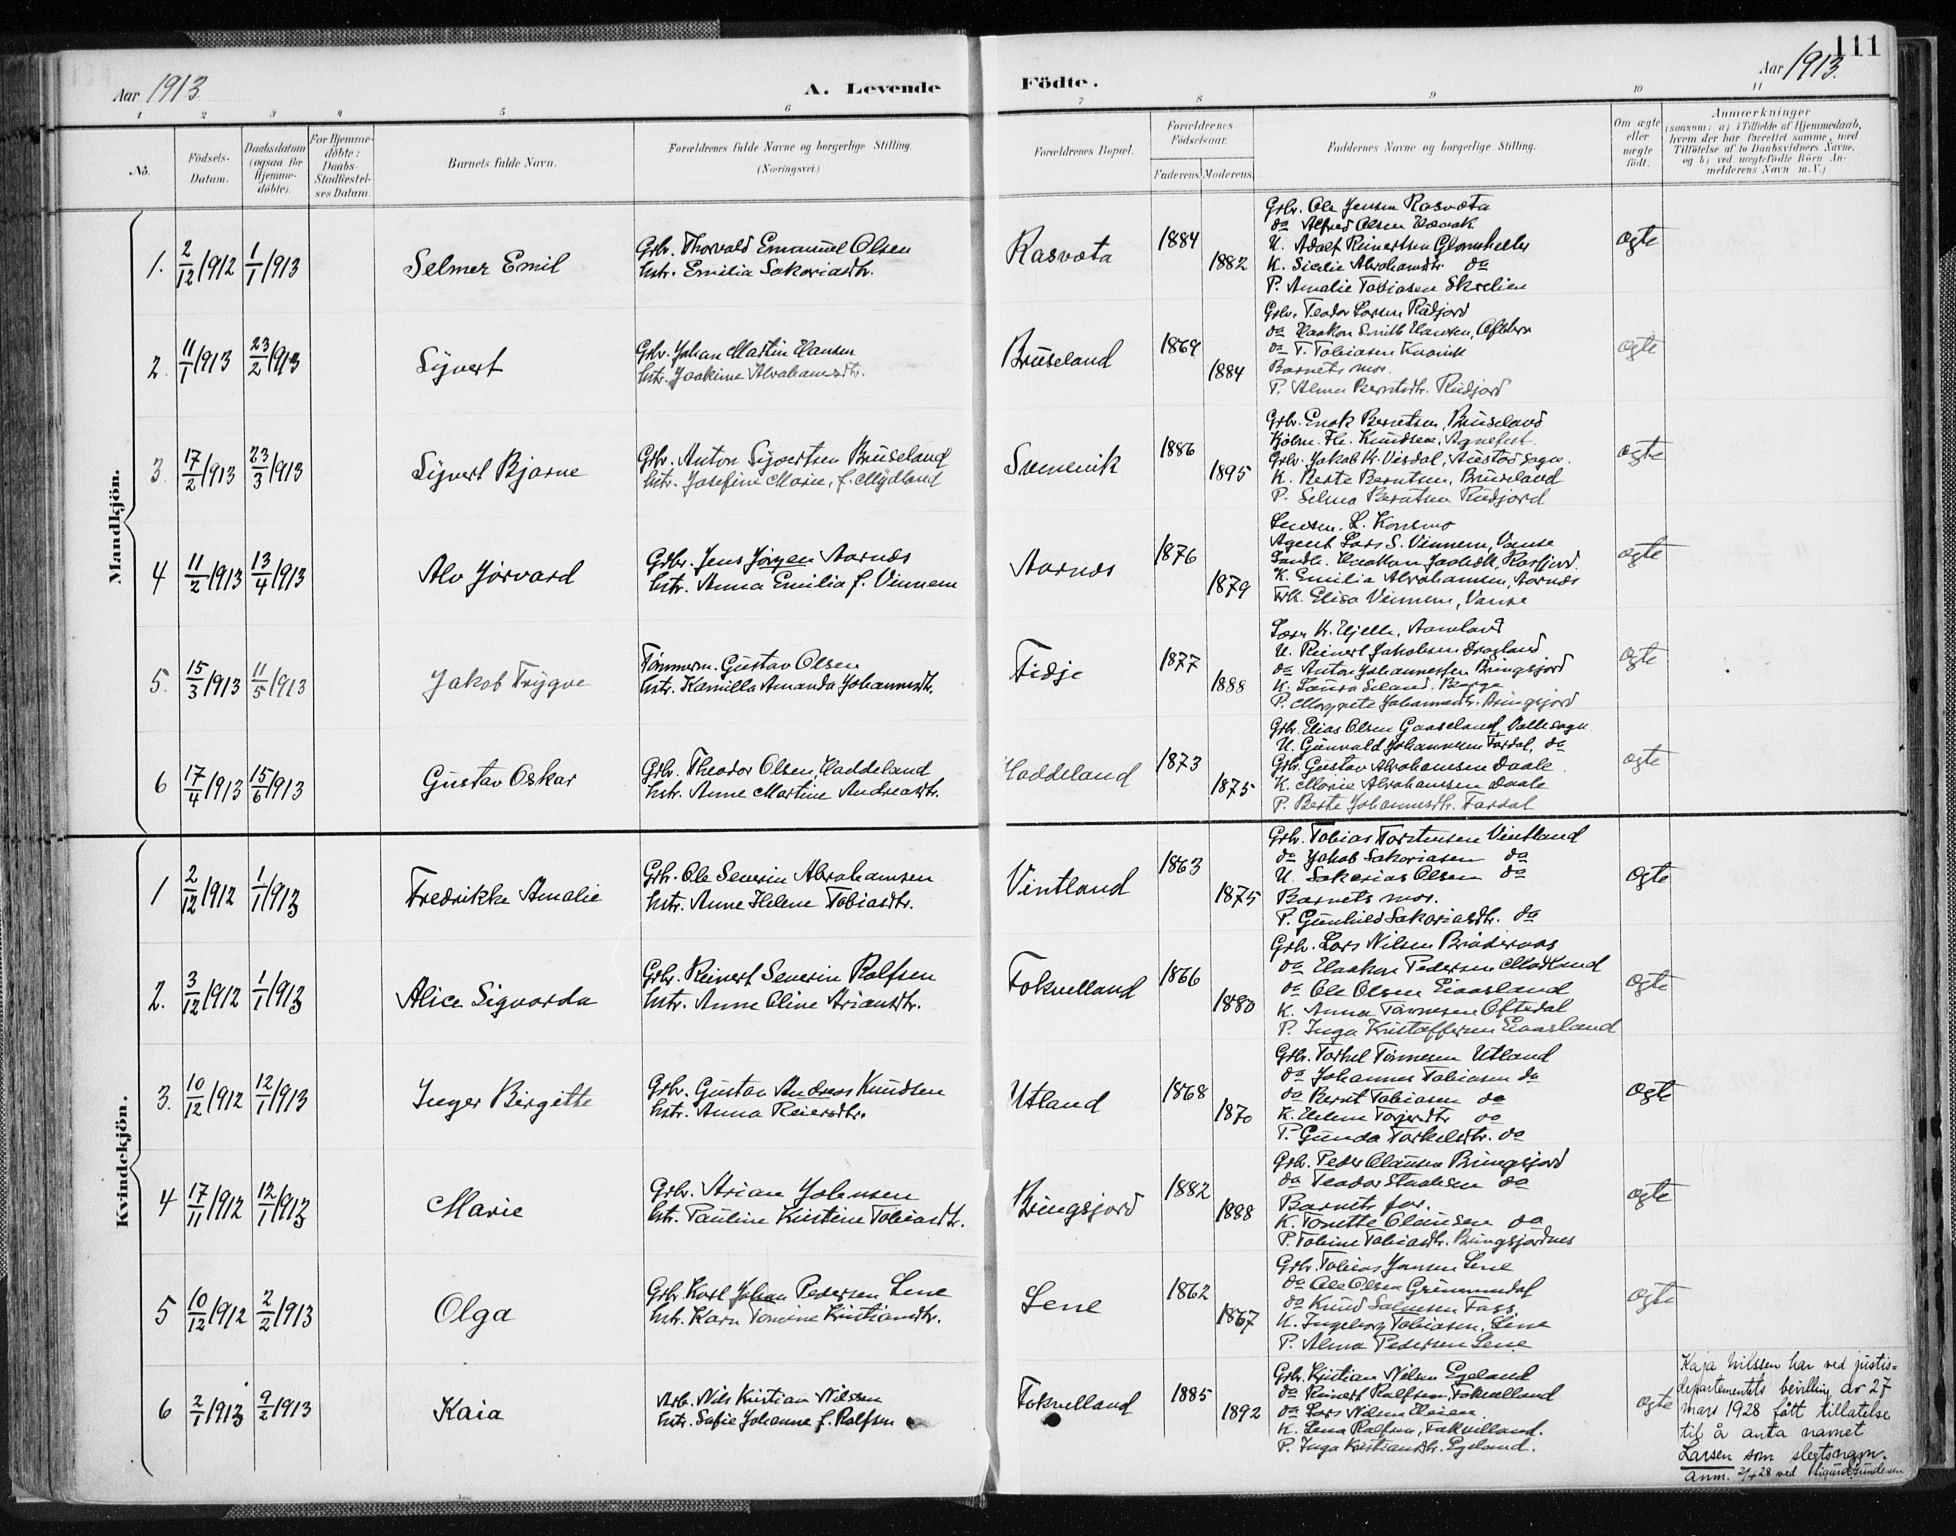 111
Aar 1913
A. Levende
Födte.
Aar 1913.
1 2 3 4 5 6 7 8 9 10 11
No.
Födsels-
Datum.
Daabsdatum
(ogsaa for
Hjemme-
döbte).
For Hjemme-
döbte:
Daabs-
Stadfæstel-
ses Datum.
Barnets fulde Navn.
Forældrenes fulde Navne og borgerlige Stilling.
(Næringsvei.)
Forældrenes Bopæl.
Forældrenes
Födselsaar.
Faderens. Moderens.
Faddernes Navne og borgerlige Stilling.
Om ægte
eller
uægte
født.
Anmærkninger
(saasom: a) i Tilfælde af Hjemmedaab,
hvem der har forrettet samme, med
Tilföielse af to Daabsvidners Navne,
og b) ved uægtefödte Börn An-
melderens Navn m.V.)
Mandkjön.
1. 2/12 1912 1/1 1913 Selmer Emil
Grbr. Thorvald Emanuel Olsen
hstr. Emilia Sakariasdtr.
Rasvota 1884 1882
Grbr. Ole Jensen Rasvota
do Alfred Olsen
U. Adolf Reinertsen
K. Sicilie Abrahamsdtr. do
P. Amalie Tobiasen
ægte
2. 11/1 1913 23/2 1913 Syvert
Grbr. Johan Martin Hansen
hstr. Joakime Abrahamsdtr.
Bruseland 1869 1884
Grbr. Teodor Larsen Rudjord
do Haakon Smith Hansen,
do T. Tobiasen
Barnets mor.
P. Alma Berntsdtr. Rudjord
ægte
3. 17/2 1913 23/3 1913 Syvert Bjarne
Grbr. Anton Syvertsen Bruseland
hstr. Josefine Marie, f. Mydland
1886 1895
Grbr. Enok Berntsen, Bruseland
Kjøbm. Fr. Knudsen, Agnefest.
Grbr. Jakob Kr. Visdal, Austad sogn.
K. Berte Berntsen, Bruseland
P. Selma Berntsen Rudjord
ægte
4 11/2 1913 13/4 1913 Alv Jørvard
Grbr. Jens Jørgen Aarnes
hstr. Anna Emilia f. Vinnem
Aarnes 1876 1879
L. Konsmo
Agent Lars S. Vinnem, Vanse
K. Emilia Abrahamsen, Aarnes
Frk. Elisa Vinnem, Vanse
ægte
5. 15/3 1913 11/5 1913 Jakob Trygve
Tømmerm. Gustav Olsen
hstr. Kamilla Amanda Johannesdtr.
Fidje 1877 1888
K. Hjelle,
U. Reinert Jakobsen
do Anton Johannessen Bringsjord
K. Laura Seland,
P. Margrete Johannesdtr. Bringsjord
ægte
6 17/4 1913 15/6 1913 Gustav Oskar
Grbr. Theodor Olsen, Haddeland
hstr. Anne Martine Andreasdtr.
Haddeland 1873 1875
Grbr. Elias Olsen Gaaseland, Valle sogn
U. Gunvald Johannesen Fardal, do
Grbr. Gustav Abrahamsen Daale
K. Marie Abrahamsen Daale
P. Berte Johannesdtr. Fardal
ægte
Kvindekjön.
1 2/12 1912 1/1 1913 Fredrikke Amalie
Grbr. Ole Severin Abrahamsen
hstr. Anne Helene Tobiasdtr.
Vintland 1863 1875
Grbr. Tobias Torstensen Vintland
do Jakob Sakariasen do
U. Sakarias Olsen do
Barnets mor.
P. Gunhild Sakariasdtr. do
ægte
2. 3/12 1912 1/1 1913 Alice Sigvarda
Grbr. Reinert Severin Rolfsen
hstr. Anne Oline Ariansdtr.
Fokvelland 1866 1880
Grbr. Lars Nilsen
do Haakon Pedersen
do Ole Olsen Eiaasland
K. Anna Tønnesen Oftedal
P. Inga Kristoffersen Eiaasland
ægte
3. 10/12 1912 12/1 1913 Inger Birgitte
Grbr. Gustav Andreas Knudsen
hstr. Anna Reiersdtr.
Utland 1868 1870
Grbr. Torkel Tønnesen Utland
do Johannes Tobiasen do
do Bernt Tobiasen do
K. Helene Torjersdtr do
P. Gunda Torkelsdtr. do
ægte
4 17/11 1912 12/1 1913 Marie
Grbr. Arian Johnsen
hstr. Pauline Kristine Tobiasdtr.
Bringsjord 1882 1888
Grbr. Peder Clausen Bringsjord
do Teodor Staalesen do
Barnets far.
K. Tonette Clausen do
P. Tobine Tobiasdtr. Bringsjordnes
ægte
5 10/12 1912 2/2 1913 Olga
Grbr. Karl Johan Pedersen Lene
hstr. Karn Tomine Kristiansdtr.
Lene 1862 1867
Grbr. Tobias Jansen Lene
do Ole Olsen
do Knud Salvesen Foss
K. Ingeborg Tobiasen, Lene
P. Alma Pedersen Lene
ægte
6 2/1 1913 9/2 1913 Kaia
Arb. Nils Kristian Nilsen
hstr. Sofie Johanne f. Rolfsen
Fokvelland 1885 1892
Grbr. Kristian Nilsen Egeland
do Reinert Rolfsen Fokvelland
do Lars Nilsen
K. Lena Rolfsen, Fokvelland.
P. Inga Kristiansdtr. Egeland.
ægte
Kaja Nilssen har ved justis-
departementets bevilling av 27
mars 1928 fått tillatelse
til å anta navnet
Larsen som slegtsnavn.
Anm. 2/4 28 ved